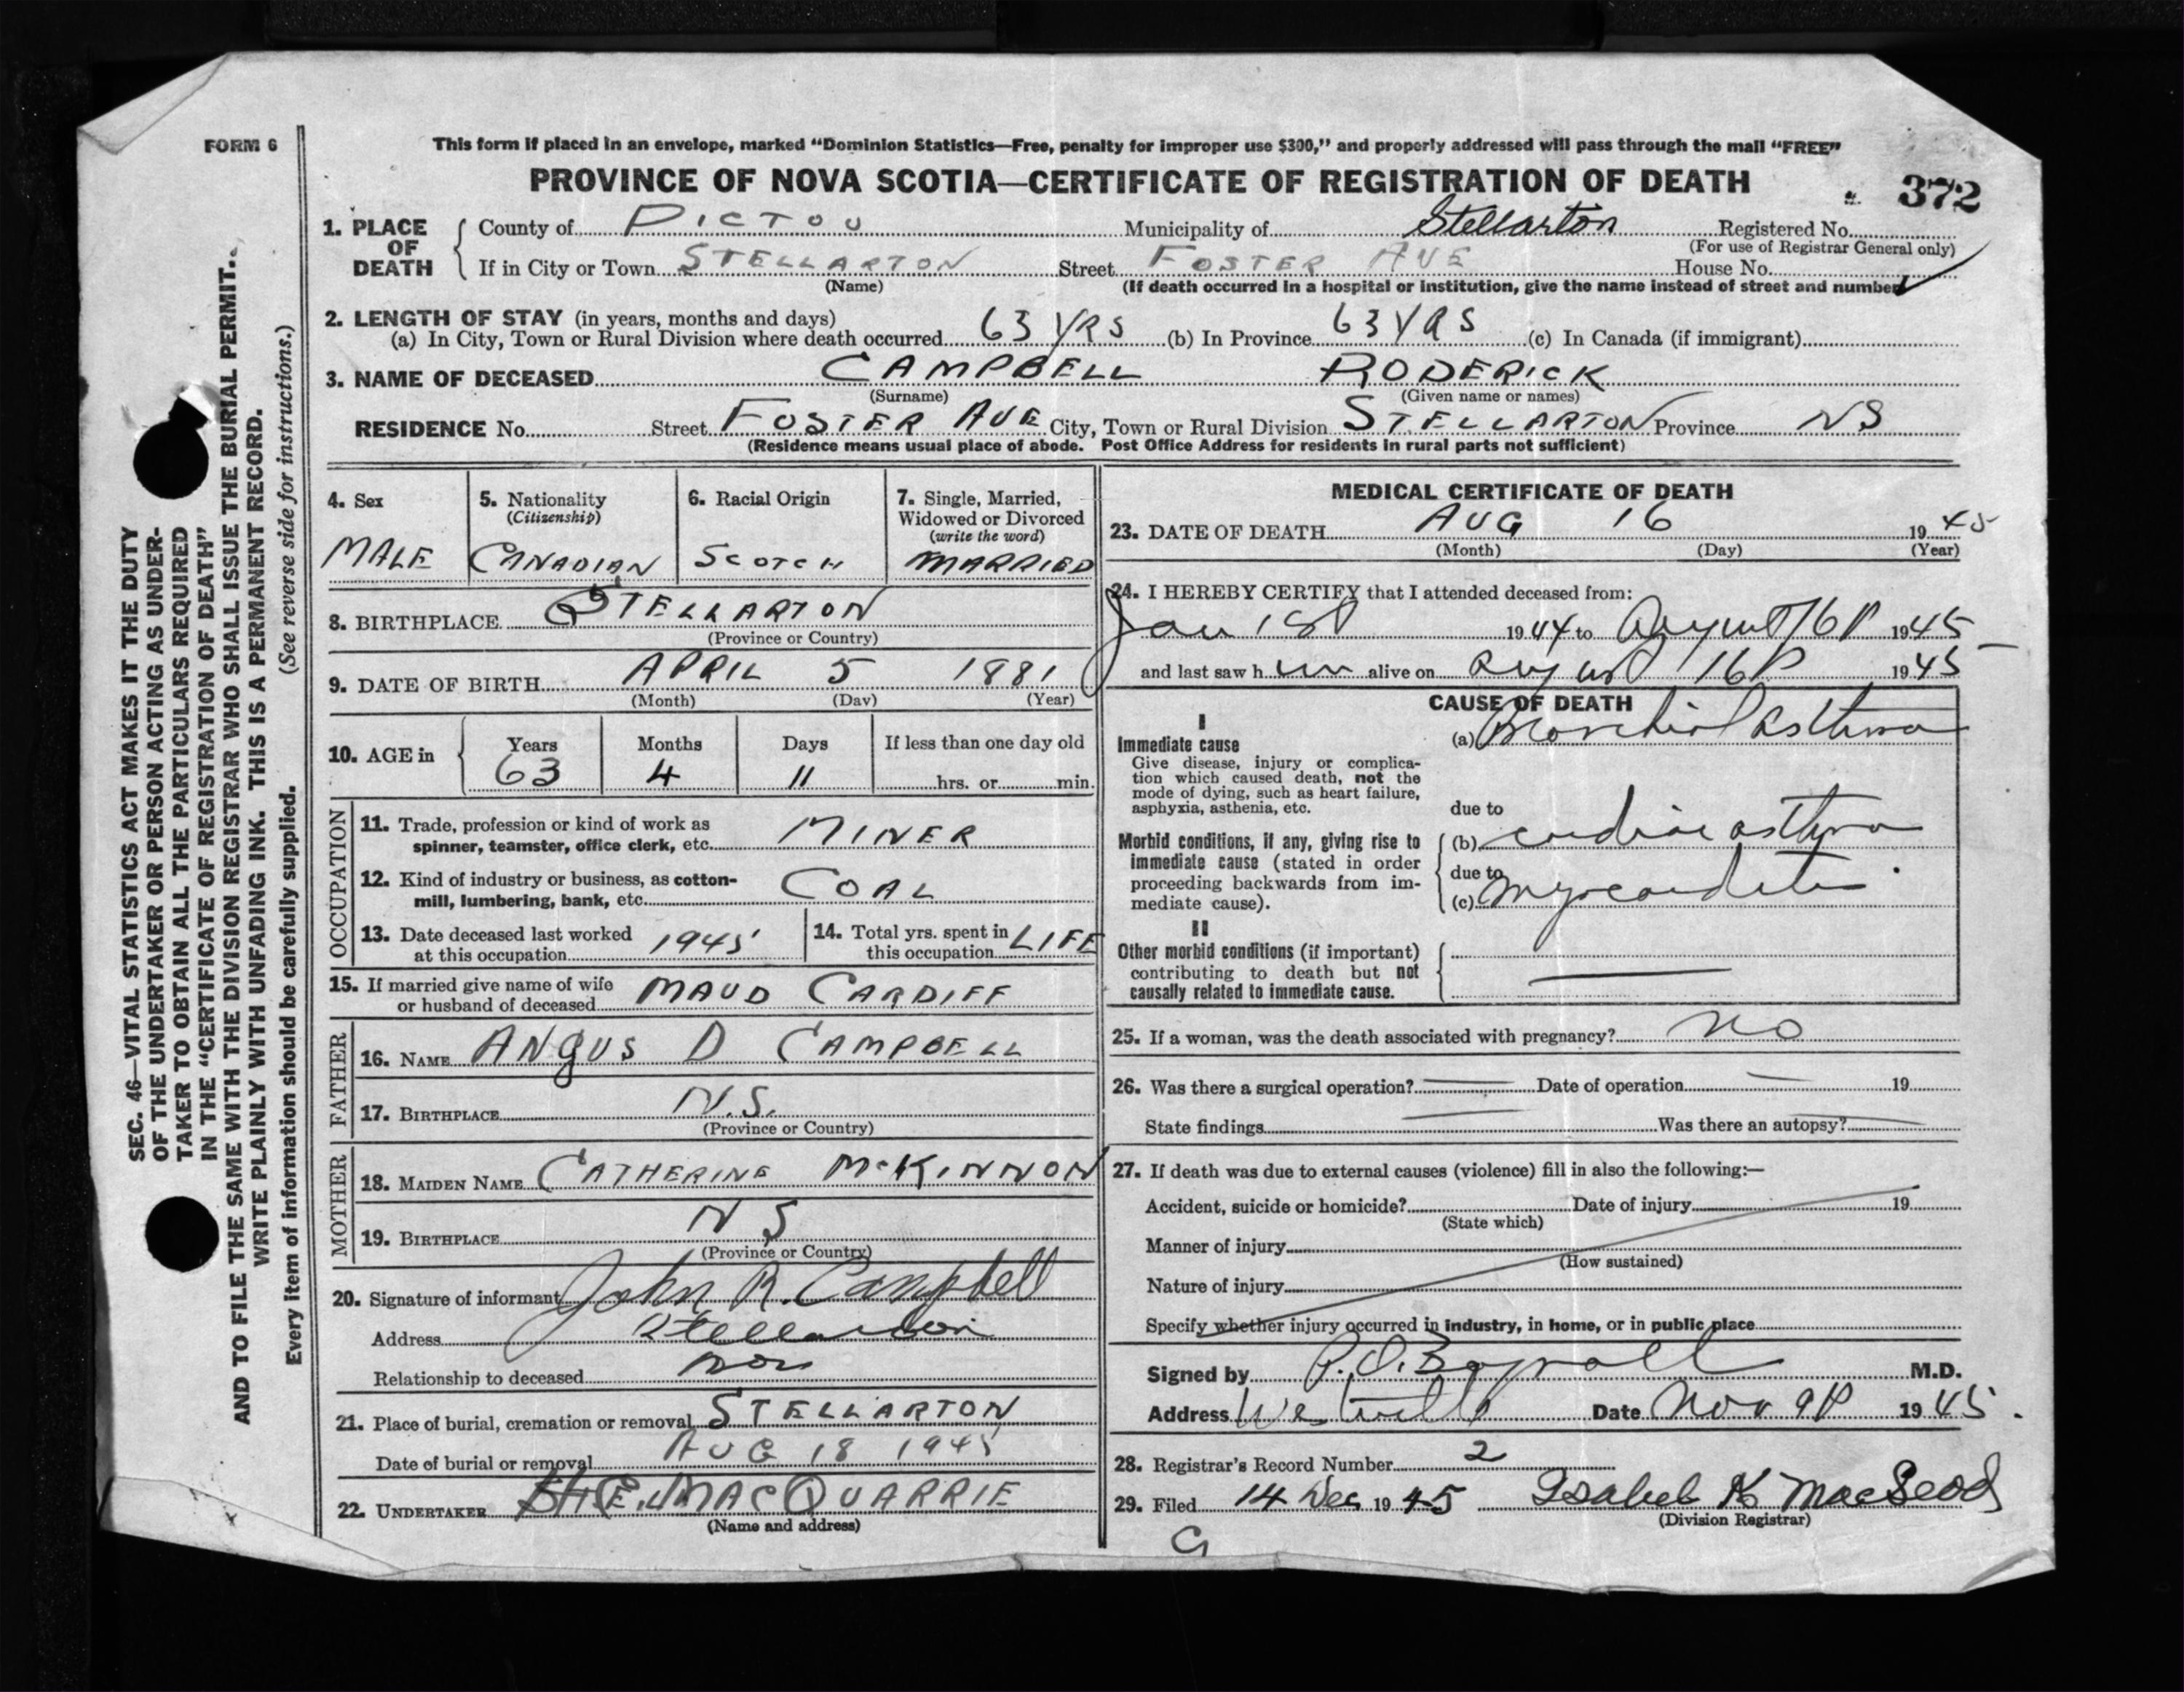 FORM 6
This form if placed in an envelope, marked "Dominion Statistics—Free, penalty for improper use $300," and properly addressed will pass through the mail "FREE"
PROVINCE OF NOVA SCOTIA—CERTIFICATE OF REGISTRATION OF DEATH
372
1. PLACE OF DEATH County of PICTOU Municipality of Stellarton Registered No.
(For use of Registrar General only)
If in City or Town STELLARTON Street FOSTER AVE House No.
(Name) (If death occurred in a hospital or institution, give the name instead of street and number)
2. LENGTH OF STAY (in years, months and days)
(a) In City, Town or Rural Division where death occurred 63 YRS (b) In Province 63 YRS (c) In Canada (if immigrant)
3. NAME OF DECEASED CAMPBELL RODERICK
(Surname) (Given name or names)
RESIDENCE No. Street FOSTER AVE City, Town or Rural Division STELLARTON Province NS
(Residence means usual place of abode. Post Office Address for residents in rural parts not sufficient)
4. Sex
MALE
5. Nationality
(Citizenship)
CANADIAN
6. Racial Origin
SCOTCH
7. Single, Married,
Widowed or Divorced
(write the word)
MARRIED
8. BIRTHPLACE STELLARTON
(Province or Country)
9. DATE OF BIRTH APRIL 5 1881
(Month) (Day) (Year)
10. AGE in Years Months Days If less than one day old
63 4 11 hrs. or min.
OCCUPATION
11. Trade, profession or kind of work as
spinner, teamster, office clerk, etc. MINER
12. Kind of industry or business, as cotton-
mill, lumbering, bank, etc. COAL
13. Date deceased last worked
at this occupation 1945
14. Total yrs. spent in
this occupation LIFE
15. If married give name of wife
or husband of deceased MAUD CARDIFF
FATHER
16. NAME ANGUS D CAMPBELL
17. BIRTHPLACE N.S.
(Province or Country)
MOTHER
18. MAIDEN NAME CATHERINE McKINNON
19. BIRTHPLACE N S
(Province or Country)
20. Signature of informant John R. Campbell
Address Stellarton
Relationship to deceased son
21. Place of burial, cremation or removal STELLARTON
Date of burial or removal AUG 18 1945
22. UNDERTAKER MACQUARRIE
(Name and address)
MEDICAL CERTIFICATE OF DEATH
23. DATE OF DEATH AUG 16 1945
(Month) (Day) (Year)
24. I HEREBY CERTIFY that I attended deceased from:
Jan 1st 1944 to August 16th 1945
and last saw him alive on August 16th 1945
CAUSE OF DEATH
I
Immediate cause
Give disease, injury or complica-
tion which caused death, not the
mode of dying, such as heart failure,
asphyxia, asthenia, etc.
(a) Bronchial Asthma
due to
Morbid conditions, if any, giving rise to
immediate cause (stated in order
proceeding backwards from im-
mediate cause).
(b) cardiac asthma
due to
(c) myocarditis
II
Other morbid conditions (if important)
contributing to death but not
causally related to immediate cause.
25. If a woman, was the death associated with pregnancy? no
26. Was there a surgical operation? Date of operation 19
State findings Was there an autopsy?
27. If death was due to external causes (violence) fill in also the following:—
Accident, suicide or homicide? Date of injury 19
(State which)
Manner of injury
(How sustained)
Nature of injury
Specify whether injury occurred in industry, in home, or in public place
Signed by Bagnall M.D.
Address Westville Date Nov 9th 1945.
28. Registrar's Record Number 2
29. Filed 14 Dec 1945 Isabel K MacLeod
(Division Registrar)
G
SEC. 46—VITAL STATISTICS ACT MAKES IT THE DUTY
OF THE UNDERTAKER OR PERSON ACTING AS UNDER-
TAKER TO OBTAIN ALL THE PARTICULARS REQUIRED
IN THE "CERTIFICATE OF REGISTRATION OF DEATH"
AND TO FILE THE SAME WITH THE DIVISION REGISTRAR WHO SHALL ISSUE THE BURIAL PERMIT.
WRITE PLAINLY WITH UNFADING INK. THIS IS A PERMANENT RECORD.
Every item of information should be carefully supplied. (See reverse side for instructions.)